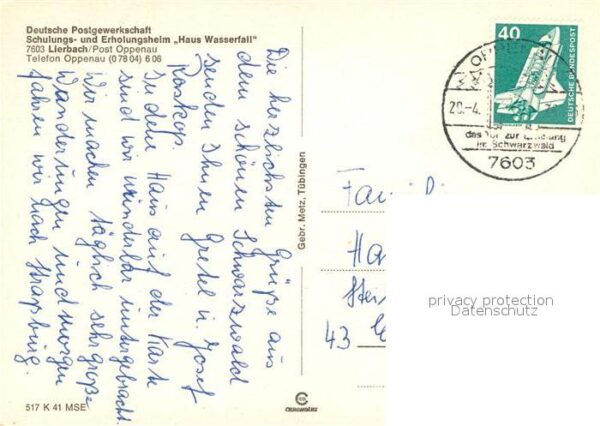 Deutsche Postgewerkschaft
Schulungs- und Erholungsheim „Haus Wasserfall"
7603 Lierbach/Post Oppenau
Telefon Oppenau (0 78 04) 6 06
Die herzlichsten Grüße aus
dem schönen Schwarzwald
senden Ihnen Gretel u. Josef
Roskops.
In dem Haus auf der Karte
sind wir wunderbar untergebracht.
Wir machen täglich sehr große
Wanderungen und morgen
fahren wir nach Straßburg.
517 K 41 MSE
Gebr. Metz, Tübingen
40
DEUTSCHE BUNDESPOST
20.-4.
das Tor zur
im Schwarzwald
7603
Fam
Ha
43
privacy protection
Datenschutz